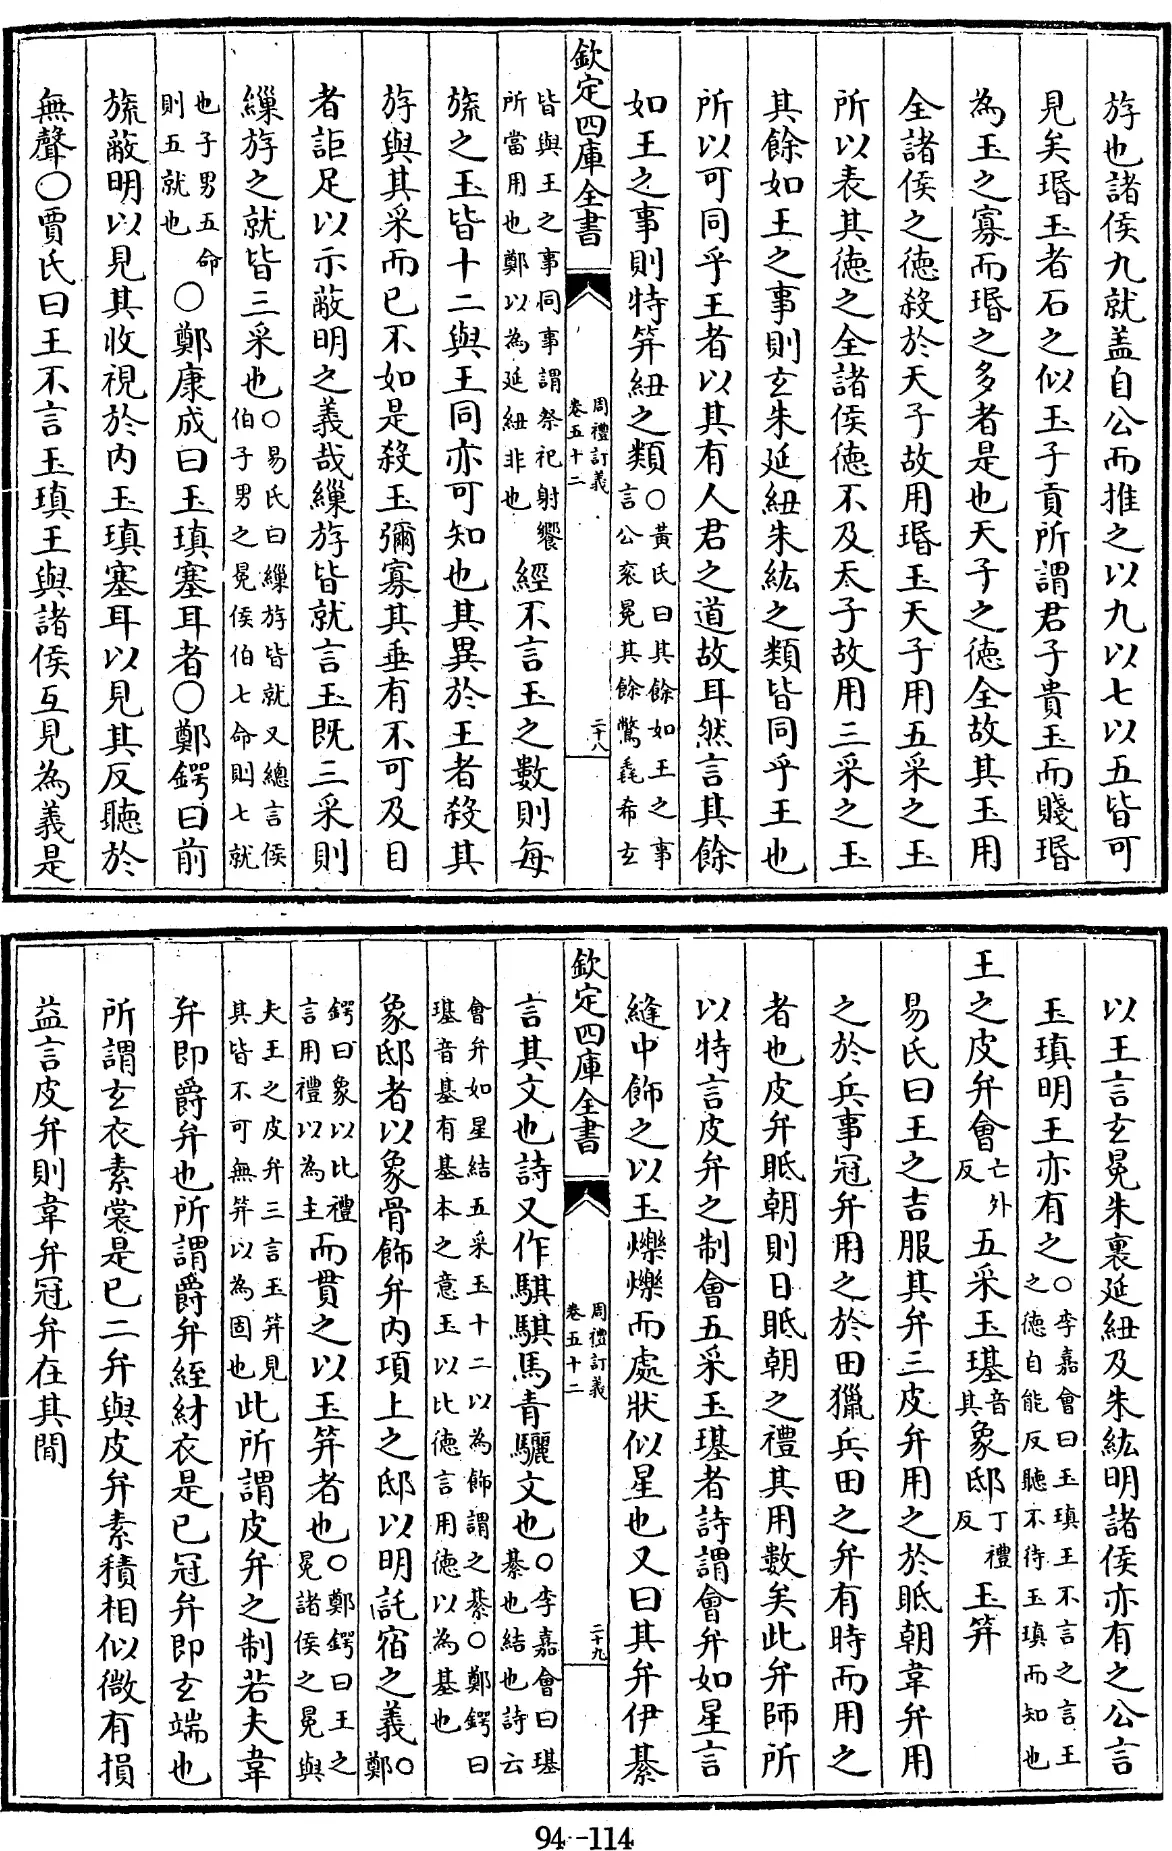 斿也諸侯九就盖自公而推之以九以七以五皆可
見矣瑉玉者石之似玉子貢所謂君子貴玉而賤瑉
為玉之寡而瑉之多者是也天子之徳全故其玉用
全諸侯之徳殺於天子故用瑉玉天子用五采之玉
所以表其徳之全諸侯徳不及天子故用三采之玉
其餘如王之事則玄朱延紐朱紘之類皆同乎王也
所以可同乎王者以其有人君之道故耳然言其餘
如王之事則特筓紐之類○黄氏曰其餘如王之事
言公衮冕其餘驚毳希玄
欽定四庫全書
周禮訂義
卷五十二
二十八
皆與王之事同事謂祭祀射饗
所當用也鄭以為延紐非也
經不言玉之數則每
旒之玉皆十二與王同亦可知也其異於王者殺其
斿與其采而已不如是殺玉彌寡其垂有不可及目
者詎足以示蔽明之義哉繅斿皆就言玉既三采則
繅斿之就皆三采也○易氏曰繅斿皆就又總言侯
伯子男之冕侯伯七命則七就
也子男五命
則五就也
○鄭康成曰玉瑱塞耳者○鄭鍔曰前
旒蔽明以見其收視於内玉瑱塞耳以見其反聴於
無聲○賈氏曰王不言玉瑱王與諸侯互見為義是
以王言玄冕朱裏延紐及朱紘明諸侯亦有之公言
玉瑱明王亦有之○李嘉會曰玉瑱王不言之言王
之徳自能反聽不待玉瑱而知也
王之皮弁會亡外
反
五采玉璂音
其
象邸丁禮
反
玉筓
易氏曰王之吉服其弁三皮弁用之於眡朝韋弁用
之於兵事冠弁用之於田獵兵田之弁有時而用之
者也皮弁眡朝則日眡朝之禮其用數矣此弁師所
以特言皮弁之制會五采玉璂者詩謂會弁如星言
縫中飾之以玉爍爍而處狀似星也又曰其弁伊綦
欽定四庫全書
周禮訂義
卷五十二
二十九
言其文也詩又作騏騏馬青驪文也○李嘉會曰璂
綦也結也詩云
會弁如星結五采玉十二以為飾謂之綦○鄭鍔曰
璂音基有基本之意玉以比徳言用徳以為基也
象邸者以象骨飾弁内項上之邸以明託宿之義○
鄭
鍔曰象以比禮
言用禮以為主
而貫之以玉筓者也○鄭鍔曰王之
冕諸侯之冕與
夫王之皮弁三言玉筓見
其皆不可無筓以為固也
此所謂皮弁之制若夫韋
弁即爵弁也所謂爵弁絰紂衣是已冠弁即玄端也
所謂玄衣素裳是已二弁與皮弁素積相似微有損
益言皮弁則韋弁冠弁在其間
94--114